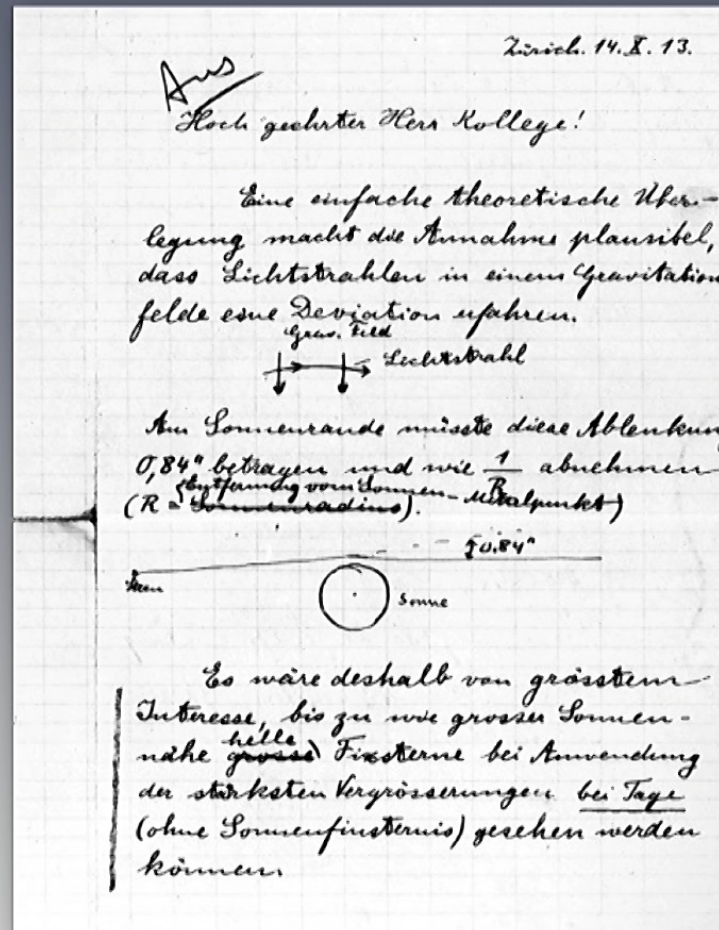 Zürich. 14. X. 13.
Aus
Hoch geehrter Herr Kollege!
Eine einfache theoretische Über-
legung macht die Annahme plausibel,
dass Lichtstrahlen in einem Gravitation
felde eine Deviation erfahren.
Grav. Feld
Lichtstrahl
Am Sonnenrande müsste diese Ablenkun
0,84" betragen und wie 1/R abnehmen
Entfernung vom Sonnen-Mittelpunkt
(R = Sonnenradius).
0.84"
Stern
Sonne
Es wäre deshalb von grösstem
Interesse, bis zu wie grosser Sonnen-
helle
nähe grosse Fixsterne bei Anwendung
der stärksten Vergrösserungen bei Tage
(ohne Sonnenfinsternis) gesehen werden
können.